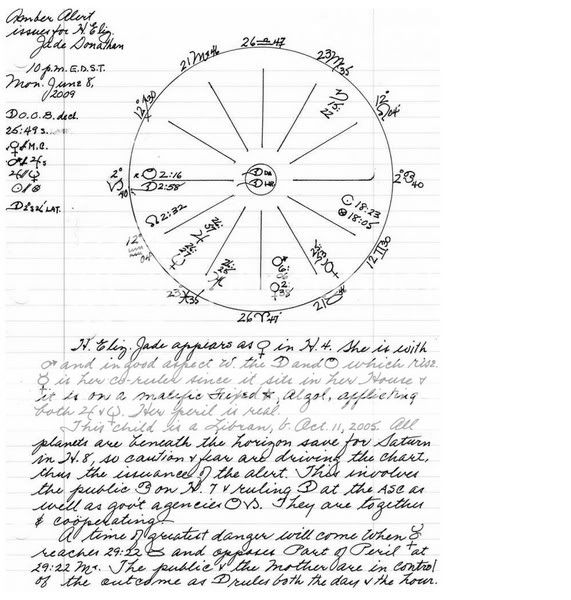 Amber Alert
issues for H. Eliz.
Jade Donathan
10 p.m. E.D.S.T.
Mon. June 8,
2009
☽ O.O.B. decl.
25:49 s.
♀ ☍ M.C.
26 ♎ 47
23 ♍ 35
12° ♌ 04'
2° ♋ 40
12 ♊ 30
21 ♉ 46
26 ♈ 47
23 ♓ 35
12° ♒ 04
2° ♑ 40
12° ♐ 30
21 ♏ 46
2:16
☽ 2:58
☊ 2:32
18:23
⊗ 18:05
H. Eliz. Jade appears as ♀ in H.4. She is with
♂ and in good aspect w. the ☽ and which rise.
☿ is her co-ruler since it sits in her House &
it is on a malefic Fixed ✶, Algol, afflicting
both ♃ & . Her peril is real.
This child is a Libran, b. Oct. 11, 2005. All
planets are beneath the horizon save for Saturn
in H.8, so caution & fear are driving the chart,
thus the issuance of the alert. This involves
the public ♋ on H. 7 & ruling ☽ at the ASC as
well as gov't agencies ♑. They are together
& coöperating.
A time of greatest danger will come when ☿
reaches 29:22 ♉ and opposes Part of Peril at
29:22 ♏. The public & the Mother are in control
of the outcome as ☽ rules both the day & the hour.